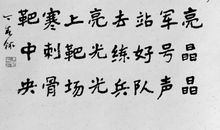 亮晶晶
军号声
站好队
去练兵
亮光光
上靶场
寒刺骨
靶中央